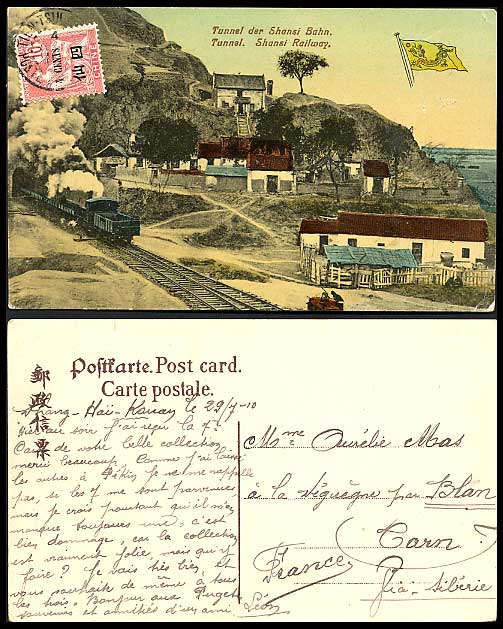 Tunnel der Shansi Bahn.
Tunnel. Shansi Railway.
CHINE
郵政信票
Postkarte. Post card.
Carte postale.
Shang-Haï-Kouan le 29/7-10
soir j'ai reçu la 7e
Carte de votre belle collection
merci beaucoup, comme j'ai laissé
les autres à Pékin je ne me rappelle
pas, si les 7 me sont parvenues,
mais je crois pourtant qu'il m'en
manque toujours une. c'est
bien dommage, car la collection
est vraiment jolie, mais qu'y
faire? Je vais très bien, et
vous souhaite de même à tous
les trois. Bonjour aux Puget
souvenirs et amitiés d'un ami
Léon
Mme Aurélie Mas
à la par Blan
(Tarn)
France
Via-Sibérie